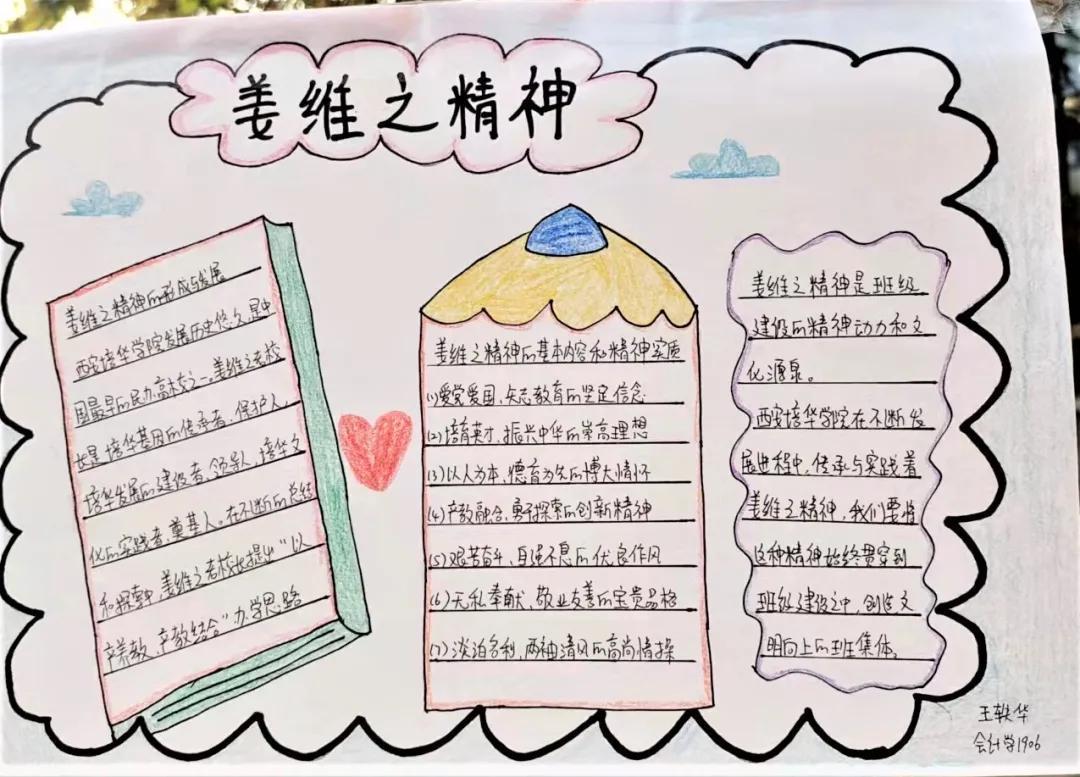 姜维之精神
姜维之精神的形成与发展
西安培华学院发展历史悠久,是中
国最早的民办高校之一。姜维之老校
长是培华基因的传承者、保护人,
培华发展的建设者、领导人,培华文
化的实践者、奠基人。在不断的总结
和探索中,姜维之老校长提出“以
产养教,产教结合”办学思路
姜维之精神的基本内容和精神实质
(1)爱党爱国,矢志教育的坚定信念
(2)培育英才,振兴中华的崇高理想
(3)以人为本,德育为先的博大情怀
(4)产教融合,勇于探索的创新精神
(5)艰苦奋斗,自强不息的优良作风
(6)无私奉献,敬业友善的宝贵品格
(7)淡泊名利,两袖清风的高尚情操
姜维之精神是班级
建设的精神动力和文
化源泉。
西安培华学院在不断发
展进程中,传承与实践着
姜维之精神,我们要将
这种精神始终贯穿到
班级建设之中,创造文
明向上的班集体。
王轶华
会计学1906